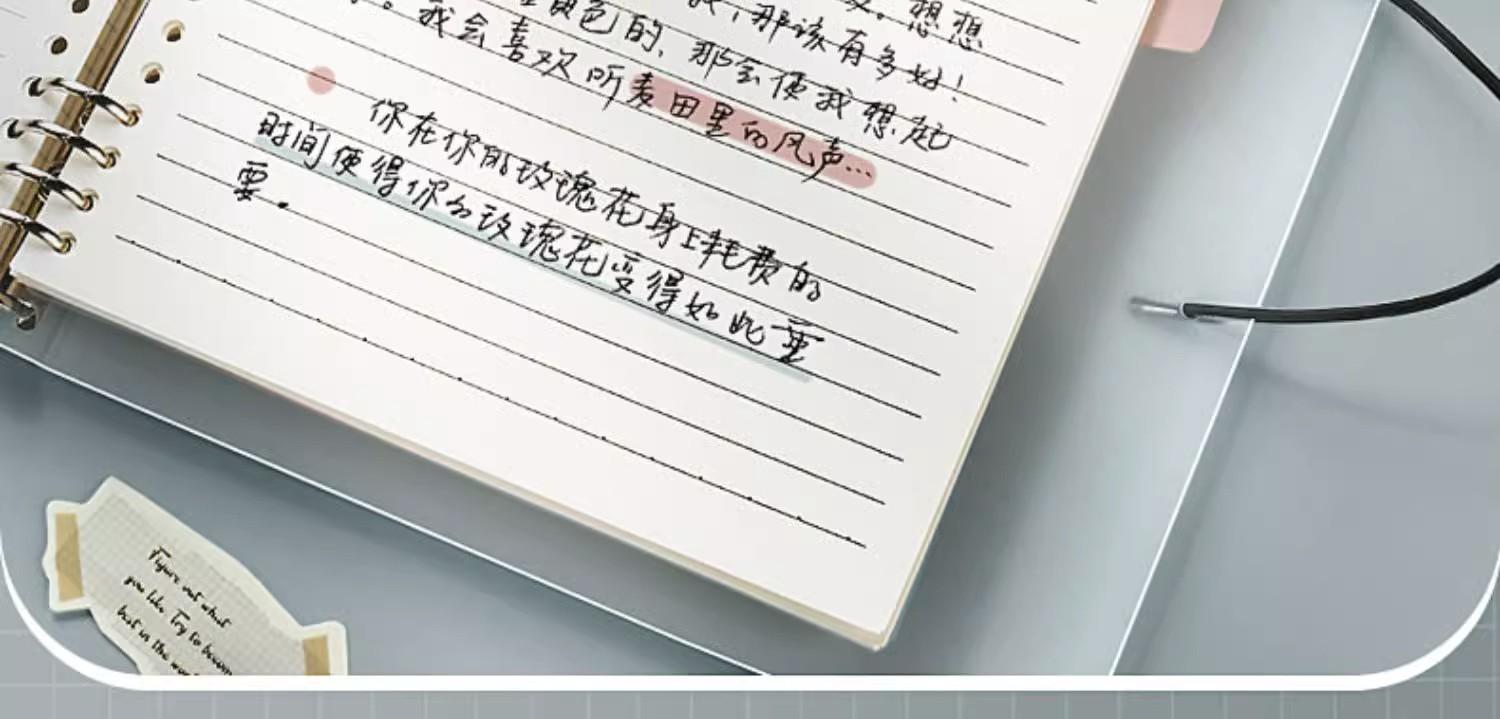 想想
，那该有多好！
色的，那会使我想起
。我会喜欢听麦田里的风声…
你在你的玫瑰花身上耗费的
时间使得你的玫瑰花变得如此重
要.
Figure out what
you like. Try to become
best in the